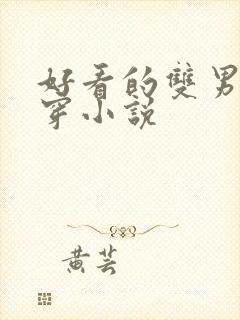 好看的雙男
穿小說
黄芸